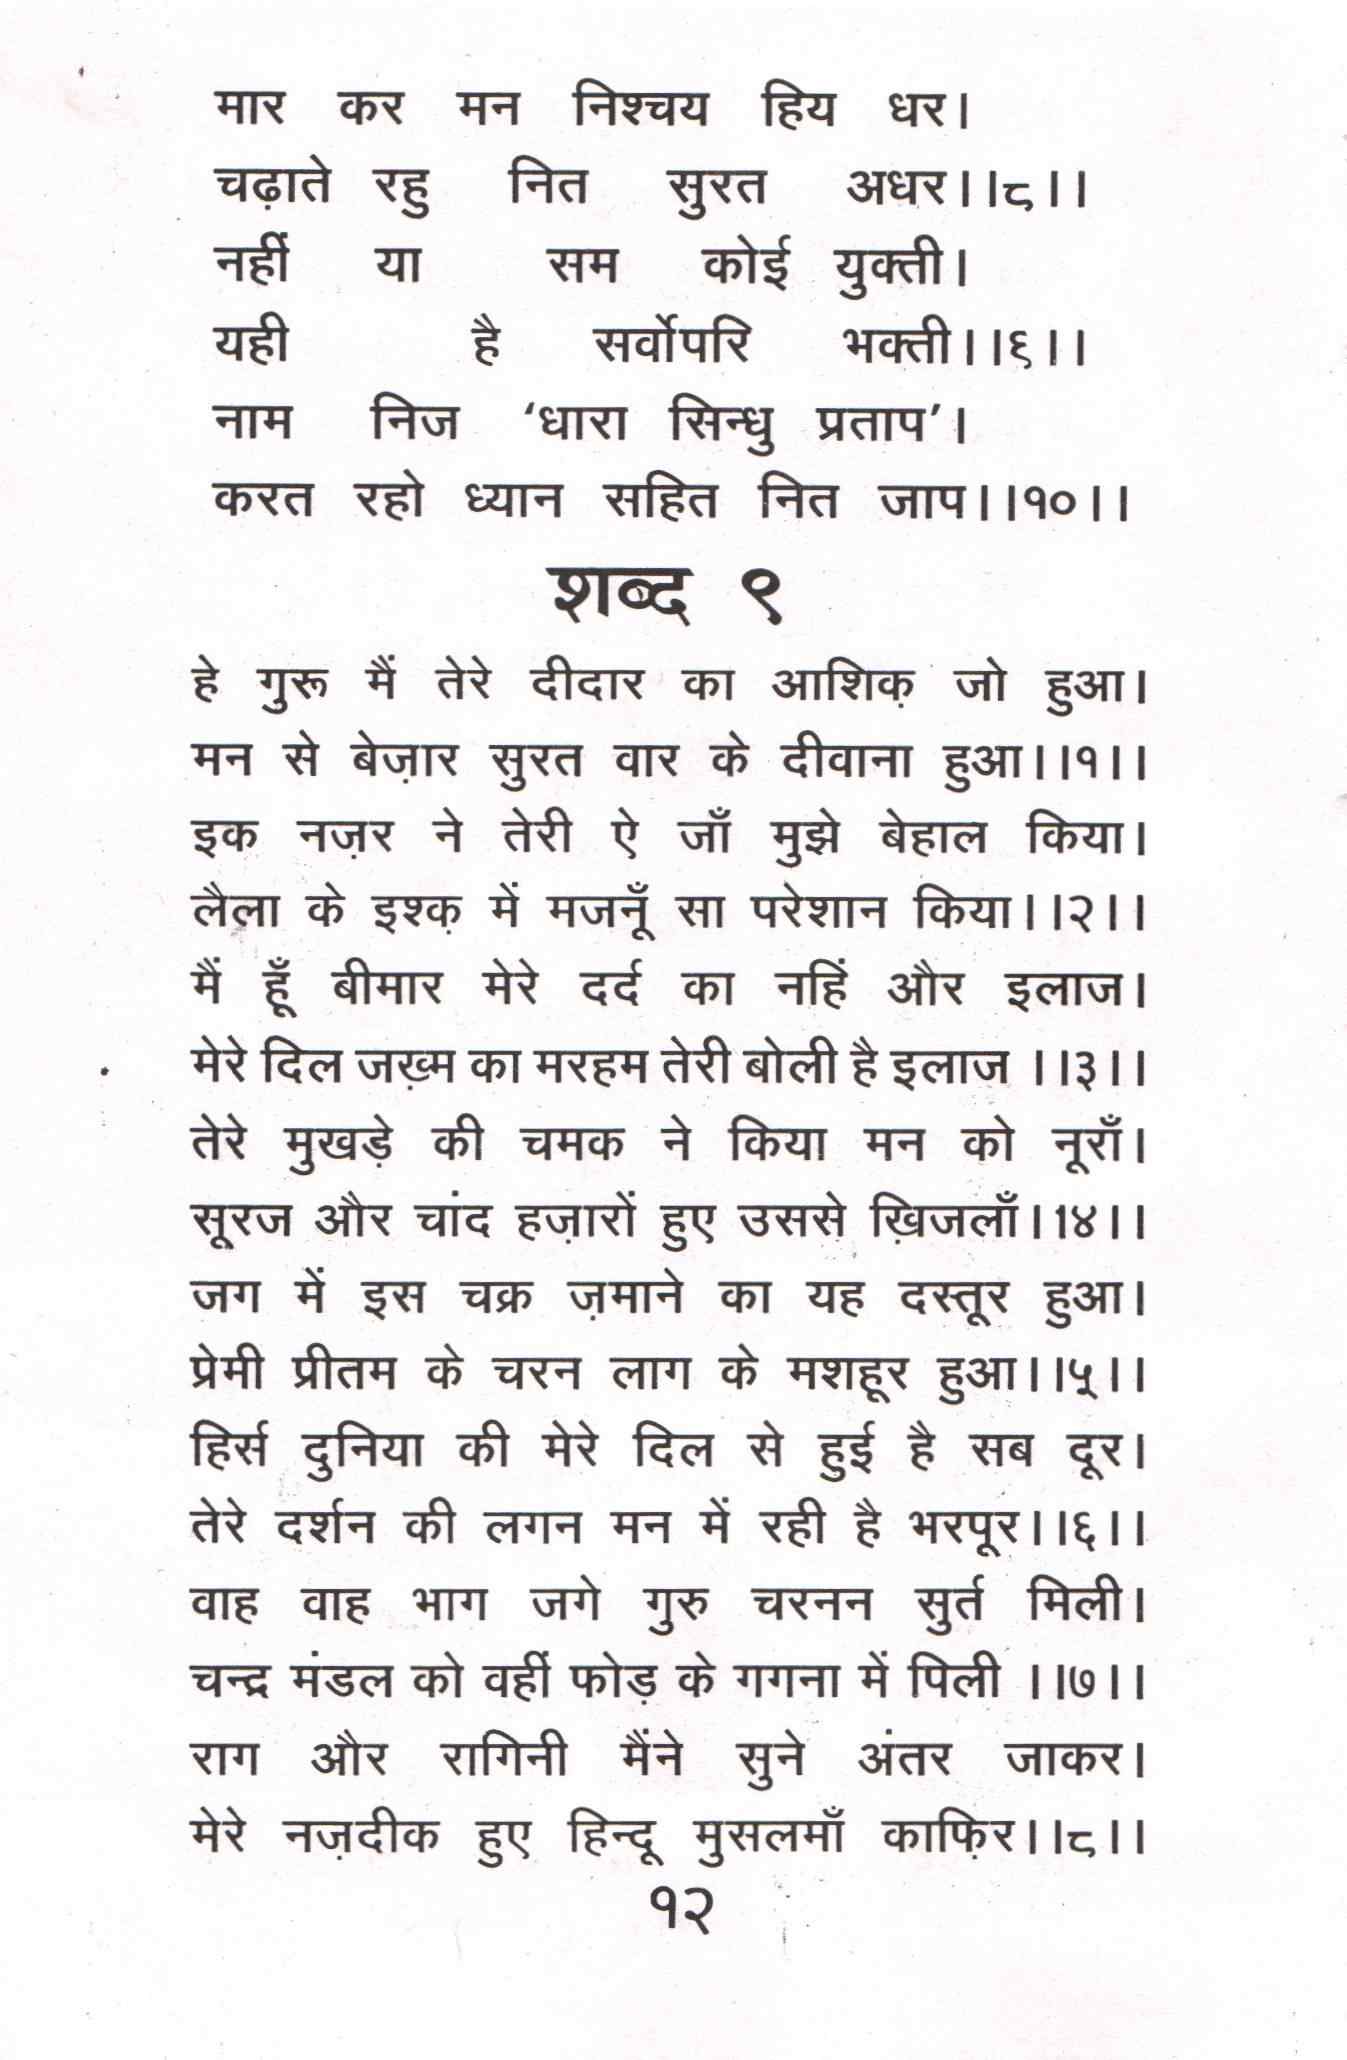 मार कर मन निश्चय हिय धर।
चढ़ाते रहु नित सुरत अधर।।८।।
नहीं या सम कोई युक्ती।
यही है सर्वोपरि भक्ती।।९।।
नाम निज ‘धारा सिन्धु प्रताप’।
करत रहो ध्यान सहित नित जाप।।१०।।
शब्द ९
हे गुरू मैं तेरे दीदार का आशिक़ जो हुआ।
मन से बेज़ार सुरत वार के दीवाना हुआ।।१।।
इक नज़र ने तेरी ऐ जाँ मुझे बेहाल किया।
लैला के इश्क़ में मजनूँ सा परेशान किया।।२।।
मैं हूँ बीमार मेरे दर्द का नहिं और इलाज।
मेरे दिल जख़्म का मरहम तेरी बोली है इलाज ।।३।।
तेरे मुखड़े की चमक ने किया मन को नूराँ।
सूरज और चांद हज़ारों हुए उससे ख़िजलाँ।।४।।
जग में इस चक्र ज़माने का यह दस्तूर हुआ।
प्रेमी प्रीतम के चरन लाग के मशहूर हुआ।।५।।
हिर्स दुनिया की मेरे दिल से हुई है सब दूर।
तेरे दर्शन की लगन मन में रही है भरपूर।।६।।
वाह वाह भाग जगे गुरु चरनन सुर्त मिली।
चन्द्र मंडल को वहीं फोड़ के गगना में पिली ।।७।।
राग और रागिनी मैंने सुने अंतर जाकर।
मेरे नज़दीक हुए हिन्दू मुसलमाँ काफ़िर।।८।।
१२